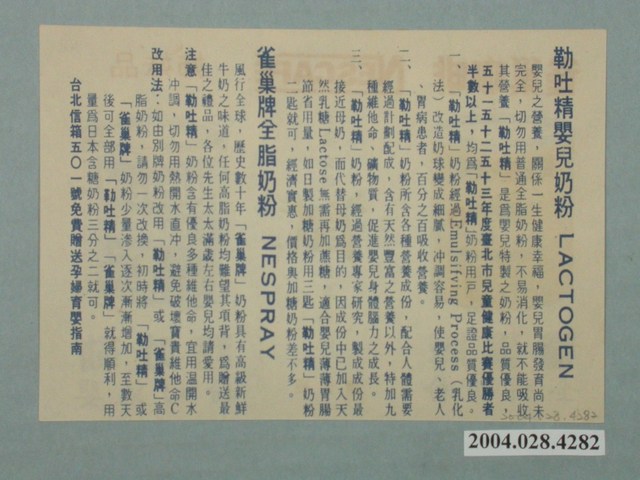 勒吐精嬰兒奶粉 LACTOGEN
嬰兒之營養，關係一生健康幸福，嬰兒胃腸發育尚未
完全，切勿用普通全脂奶粉，不易消化，就不能吸收
其營養「勒吐精」是為嬰兒特製之奶粉，品質優良，
五十一五十二五十三年度臺北市兒童健康比賽優勝者
半數以上，均為「勒吐精」奶粉用戶，足證品質優良。
一、「勒吐精」奶粉經過Emulsifving Process（乳化
法）改造奶球變成細膩，冲調容易，使嬰兒、老人
、胃病患者，百分之百吸收營養。
二、「勒吐精」奶粉所含各種營養成份，配合人體需要
經過計劃配成，含有天然豐富之營養以外，特加九
種維他命、礦物質，促進嬰兒身體腦力之成長。
三、「勒吐精」奶粉，經過營養專家研究，製成成份最
接近母奶，而代替母奶為目的，因成份中已加入天
然乳糖Lactose無需再加蔗糖，適合嬰兒薄薄胃腸
節省用量，如日製加糖奶粉用三匙「勒吐精」奶粉
二匙就可，經濟實惠，價格與加糖奶粉差不多。
雀巢牌全脂奶粉 NESPRAY
風行全球，歷史數十年「雀巢牌」奶粉具有高級新鮮
牛奶之味道，任何高脂奶粉均難望其項背，為贈送最
佳之禮品，各位先生太太滿歲左右嬰兒均請愛用。
注意「勒吐精」奶粉含有優良多種維他命，宜用温開水
冲調，切勿用熱開水直冲，避免破壞寶貴維他命C
改用法：如由別牌奶粉改用「勒吐精」或「雀巢牌」高
脂奶粉，請勿一次改換，初時將「勒吐精」或
「雀巢牌」奶粉少量滲入逐次漸漸增加，至數天
後可全部用「勒吐精」「雀巢牌」就得順利，用
量為日本含糖奶粉三分之二就可。
台北信箱五〇一號免費贈送孕婦育嬰指南
2004.028.4282
2004.028.4282